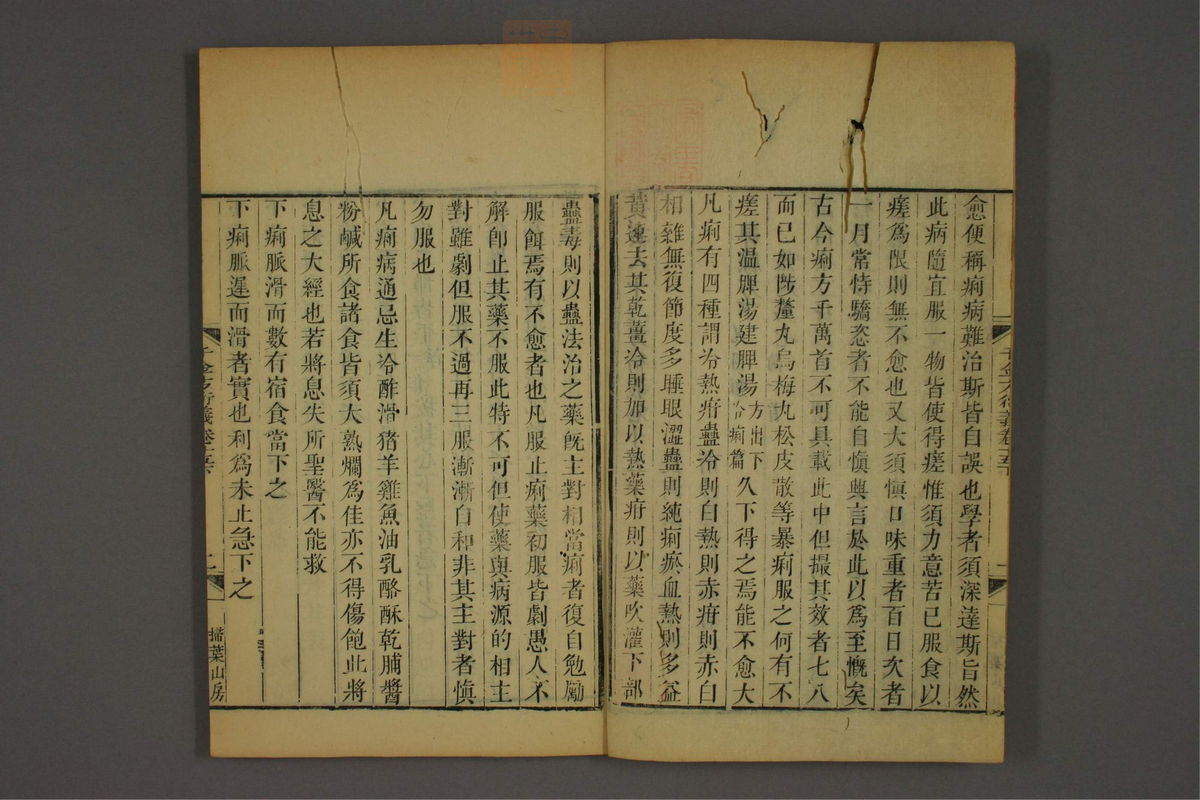 愈便稱痢病難治斯皆自誤也學者須深達斯旨然
此病隨宜服一物皆使得瘥惟須力意苦已服食以
瘥爲限則無不愈也又大須愼口味重者百日次者
一月常恃驕恣者不能自愼興言於此以爲至慨矣
古今痢方千萬首不可具載此中但撮其效者七八
而已如陟釐丸烏梅丸松皮散等暴痢服之何有不
瘥其温脾湯建脾湯方出下冷痢篇久下得之焉能不愈大
凡痢有四種謂冷熱疳蠱冷則白熱則赤疳則赤白
相雜無復節度多睡眼澀蠱則純痢瘀血熱則多益
黃連去其乾薑冷則加以熱藥疳則以藥吹灌下部
蠱毒則以蠱法治之藥旣主對相當痢者復自勉勵
服餌焉有不愈者也凡服止痢藥初服皆劇愚人不
解卽止其藥不服此特不可但使藥與病源的相主
對雖劇但服不過再三服漸漸自和非其主對者愼
勿服也
凡痢病通忌生冷酢滑猪羊雞魚油乳酪酥乾脯醬
粉鹹所食諸食皆須大熟爛爲佳亦不得傷飽此將
息之大經也若將息失所聖醫不能救
下痢脈滑而數有宿食當下之
下痢脈遲而滑者實也利爲未止急下之
千金方衍義卷
掃葉山房